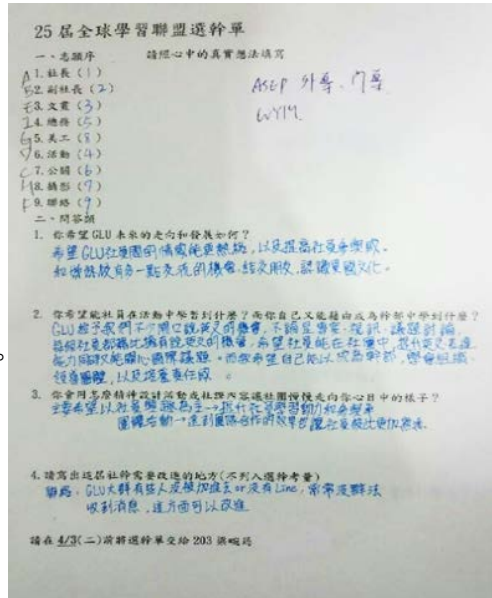 25 屆全球學習聯盟選幹單
一、志願序 請照心中的真實想法填寫
A 1. 社長 (1)
B 2. 副社長 (2)
E 3. 文書 (3)
4. 總務 (5)
G 5. 美工 (8)
6. 活動 (4)
C 7. 公關 (6)
H 8. 攝影 (7)
F 9. 聯絡 (9)
ASEP 外導、內導
WYM
二、問答題
1. 你希望 GLU 未來的走向和發展如何?
希望GLU社員間的情感能更熱絡,以及提高社員參與感。
和姊妹校有多一點交流的機會,結交朋友,認識異國文化。
2. 你希望能社員在活動中學習到什麼?而你自己又能藉由成為幹部中學到什麼?
GLU給予我們不少開口說英文的機會,不論是專案、視訊、議題討論,
每個社員都能比擁有說英文的機會,希望社員能在社團中,提升英文表達
能力同時又能關心國際議題。而我希望自己能以成為幹部,學會組織、
領導團體,以及培養責任感。
3. 你會用怎麼精神設計活動或社課內容讓社團慢慢走向你心目中的樣子?
主要希望以社員興趣為主→提升社員學習動力和參與率
團體活動→達到團隊合作的效率 讓社員彼此更加熟悉。
4. 請寫出這屆社幹需要改進的地方(不列入選幹考量)
聯絡:GLU大群有些人沒被加進去or沒有Line,常常沒辦法
收到消息,這方面可以改進
請在 4/3(二)前將選幹單交給 203